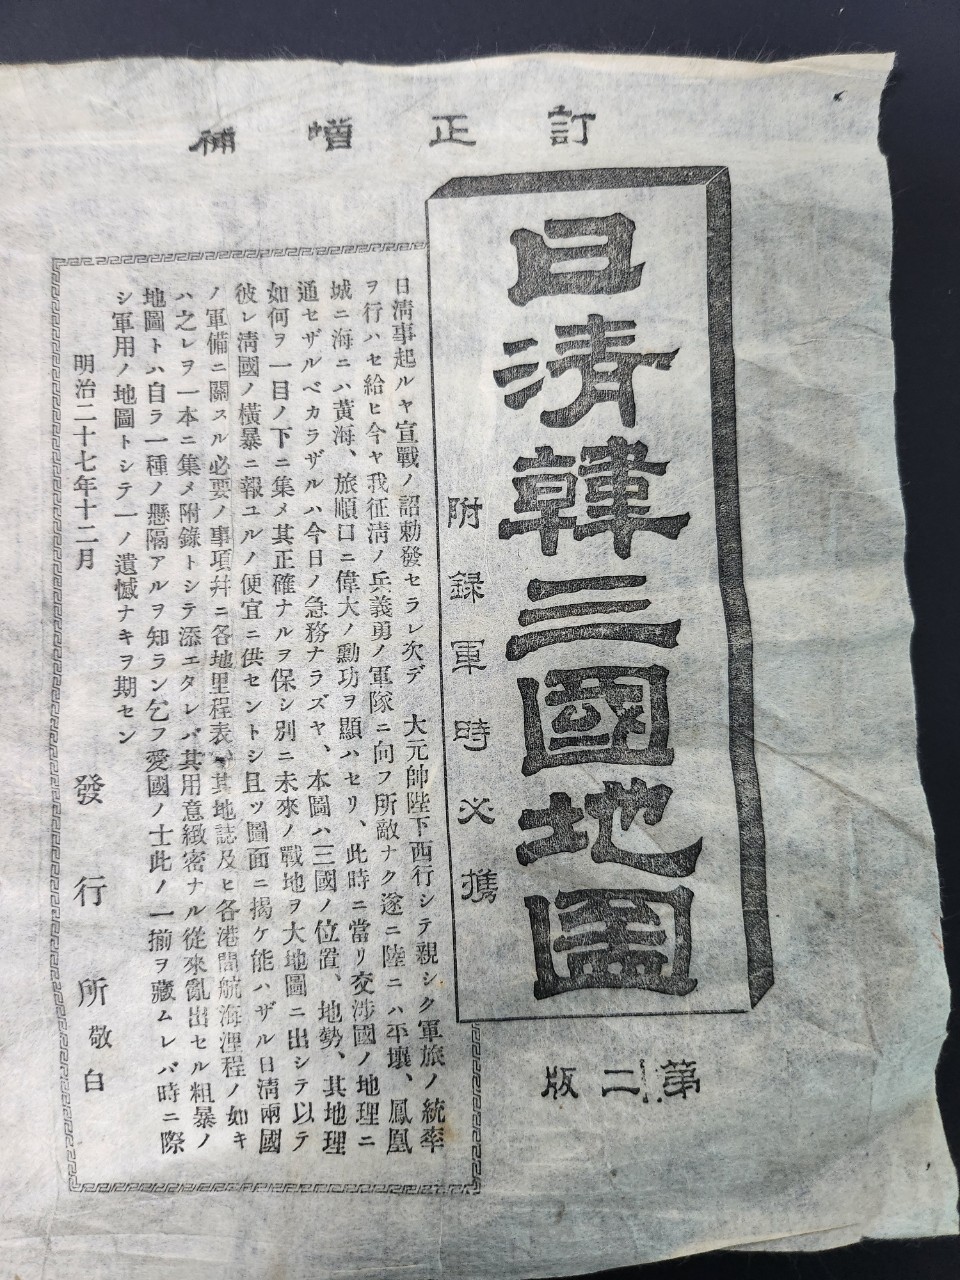 訂正增補
日淸韓三國地圖
附録軍時必携
第二版
日淸事起ルヤ宣戰ノ詔勅發セラレ次デ　大元帥陛下西行シテ親シク軍旅ノ統率
ヲ行ハセ給ヒ今ヤ我征淸ノ兵義勇ノ軍隊ニ向フ所敵ナク遂ニ陸ニハ平壤、鳳凰
城ニ海ニハ黃海、旅順口ニ偉大ノ勳功ヲ顯ハセリ、此時ニ當リ交涉國ノ地理ニ
通セザルベカラザルハ今日ノ急務ナラズヤ、本圖ハ三國ノ位置、地勢、其地理
如何ヲ一目ノ下ニ集メ其正確ナルヲ保シ別ニ未來ノ戰地ヲ大地圖ニ出シテ以テ
彼レ淸國ノ橫暴ニ報ユルノ便宜ニ供セントシ且ツ圖面ニ揭ケ能ハザル日淸兩國
ノ軍備ニ關スル必要ノ事項幷ニ各地里程表其地誌及ヒ各港間航海浬程ノ如キ
ハ之レヲ一本ニ集メ附錄トシテ添エタレバ其用意緻密ナル從來亂出セル粗暴ノ
地圖トハ自ラ一種ノ懸隔アルヲ知ラン乞フ愛國ノ士此ノ一揃ヲ藏ムレバ時ニ際
シ軍用ノ地圖トシテ一ノ遺憾ナキヲ期セン
明治二十七年十二月
發行所敬白